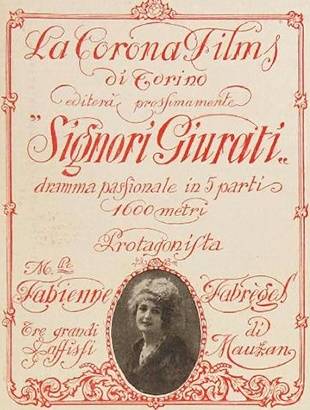 La Corona Films
di Torino
editerà prossimamente
"Signori Giurati"
dramma passionale in 5 parti
1600 metri
Protagonista
M.lle
Fabienne Fabrèges
Tre grandi di
affissi Mauzan